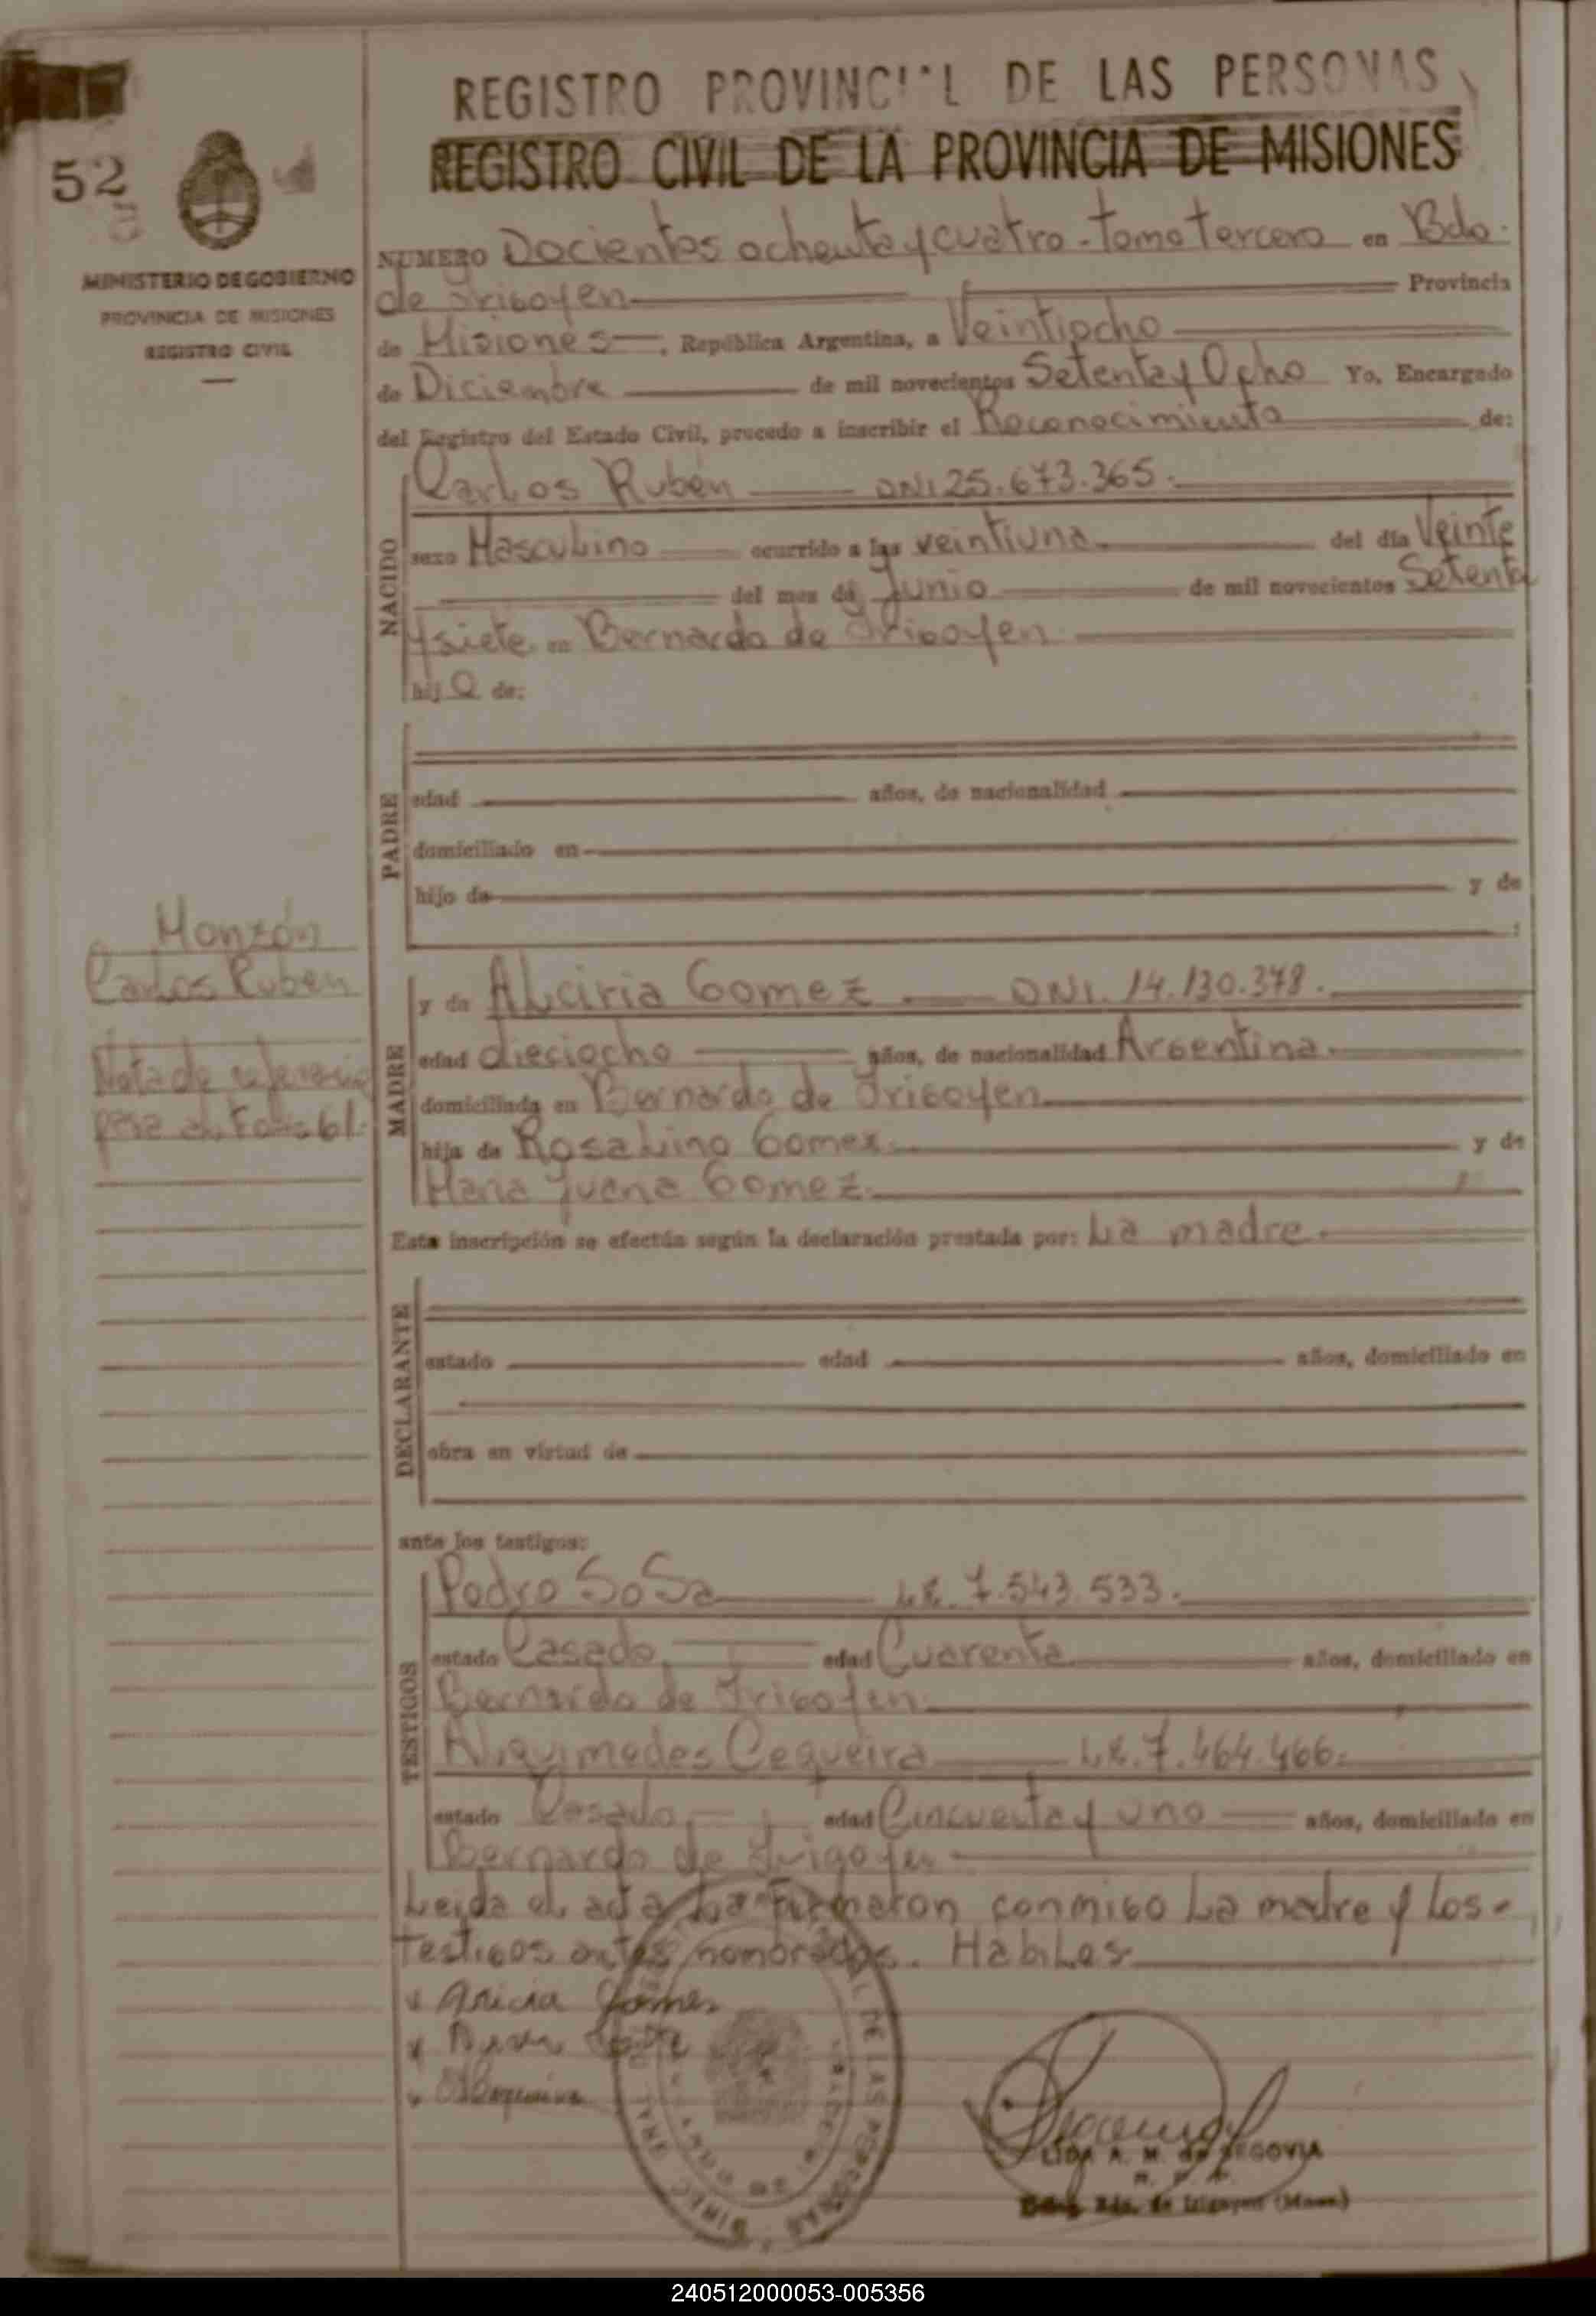 REGISTRO PROVINCIAL DE LAS PERSONAS
REGISTRO CIVIL DE LA PROVINCIA DE MISIONES
52
MINISTERIO DE GOBIERNO
PROVINCIA DE MISIONES
REGISTRO CIVIL
NUMERO Docientos ochenta y cuatro - tomo tercero en Bdo.
de Irigoyen Provincia
de Misiones, República Argentina, a Veintiocho
de Diciembre de mil novecientos Setenta y Ocho Yo, Encargado
del Registro del Estado Civil, procedo a inscribir el Reconocimiento de:
NACIDO
Carlos Rubén DNI 25.673.365.
sexo Masculino ocurrido a las veintiuna del día Veinte
del mes de Junio de mil novecientos Setenta
y siete en Bernardo de Irigoyen
hij o de:
PADRE
edad años, de nacionalidad
domiciliado en
hijo de y de
Monzón
Carlos Ruben
Nota de referencia
pasa al Folio 61.
MADRE
y de Alciria Gomez DNI. 14.130.378.
edad dieciocho años, de nacionalidad Argentina.
domiciliada en Bernardo de Irigoyen
hija de Rosalino Gomez y de
Maria Juana Gomez.
Esta inscripción se efectúa según la declaración prestada por: La madre.
DECLARANTE
estado edad años, domiciliado en
obra en virtud de
ante los testigos:
TESTIGOS
Pedro Sosa L.E. 7.543.533.
estado Casado edad Cuarenta años, domiciliado en
Bernardo de Irigoyen.
Alquimedes Cequeira L.E. 7.464.466.
estado Casado edad Cincuenta y uno años, domiciliado en
Bernardo de Irigoyen
Leida el acta La Firmaron conmigo La madre y Los
Testigos antes nombrados. Habiles
Gomes
DE LAS PERSONAS
LIDA A. M. de SEGOVIA
Bdo. de Irigoyen (Mnes.)
240512000053-005356